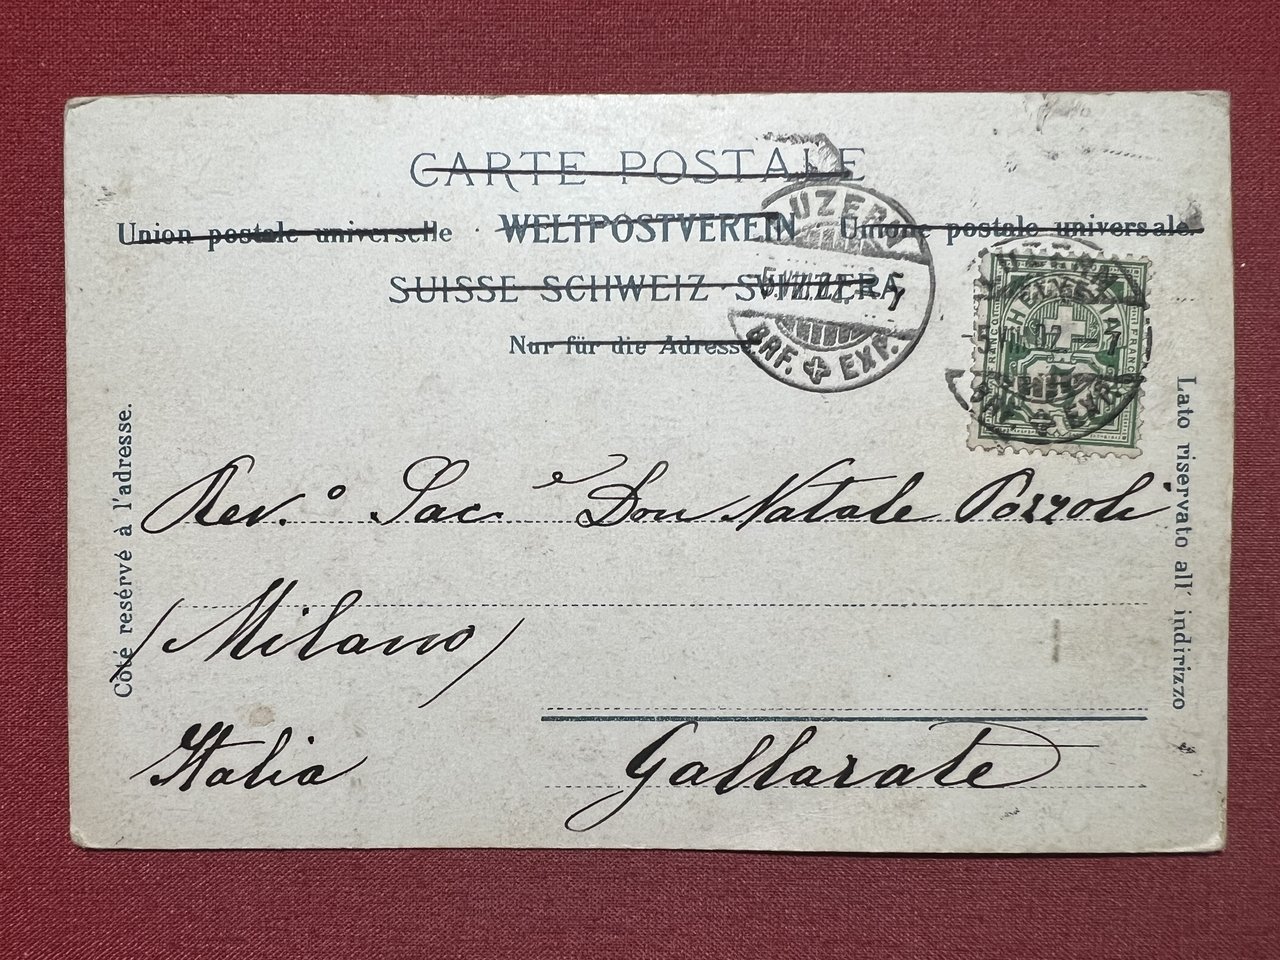 CARTE POSTALE
Union postale universelle · WELTPOSTVEREIN · Unione postale universale.
SUISSE SCHWEIZ SVIZZERA
Nur für die Adresse.
LUZERN
BRF. EXP.
LUZERN
5 VIII 02 - 7
BRF. EXP.
HELVETIA
FRANCO
FRANCO
5
Côté resérvé à l'adresse.
Lato riservato all' indirizzo
Rev.° Sac.e Don Natale Pozzoli
(Milano)
Italia
Gallarate